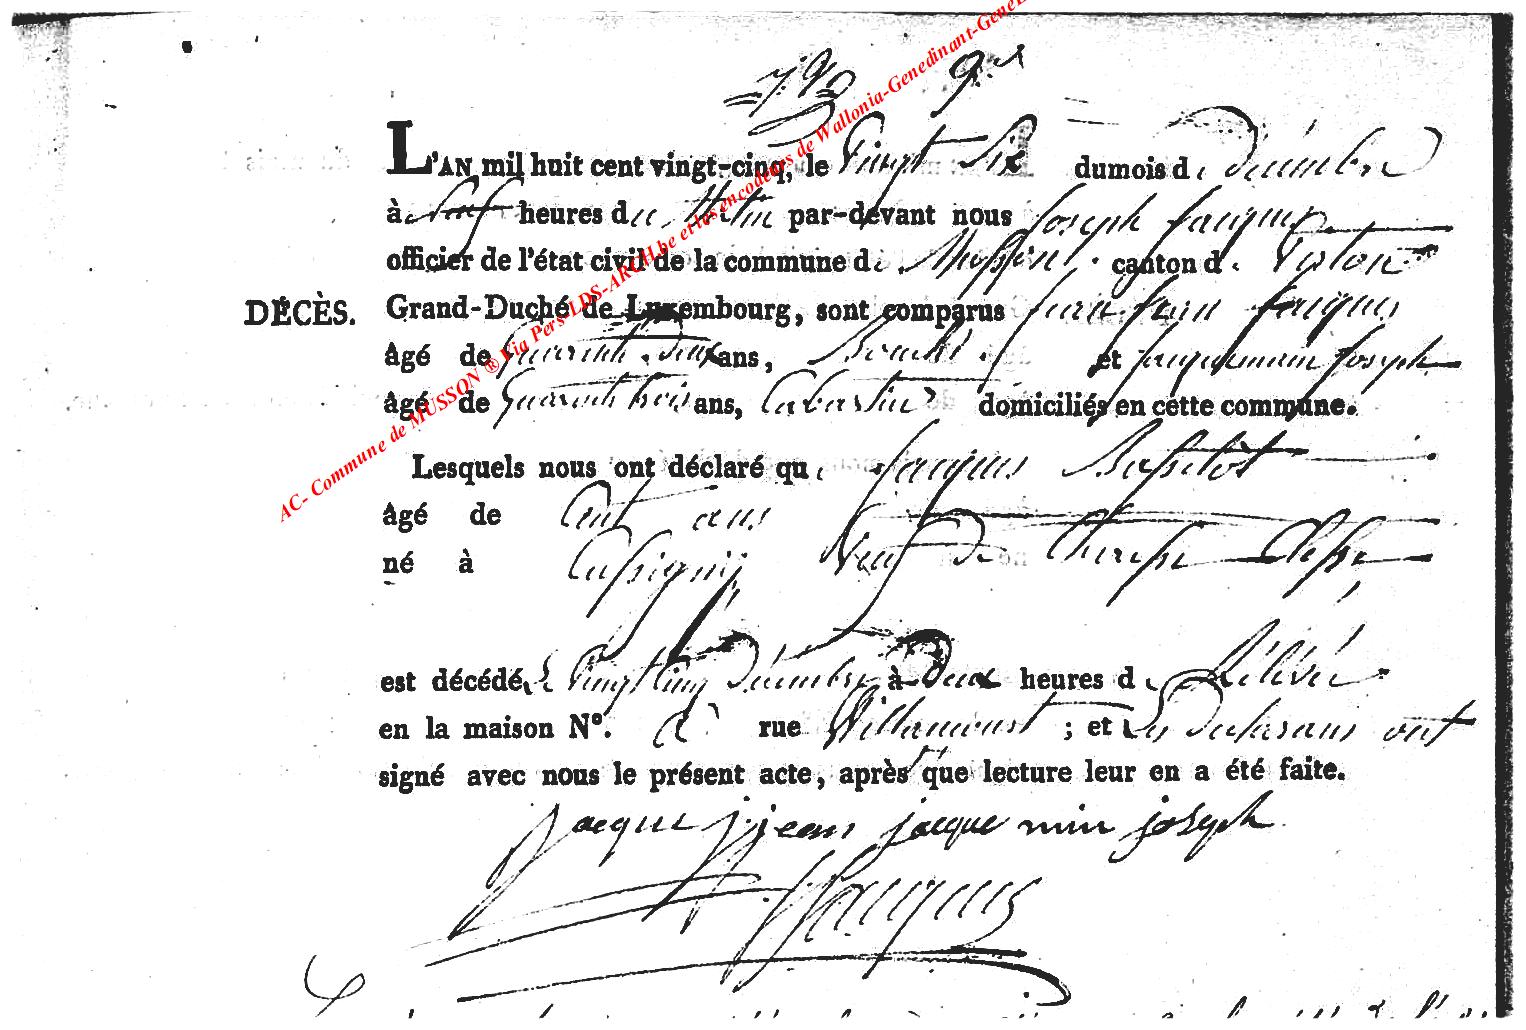 L'AN mil huit cent vingt-cinq, le vingt Six du mois de décembre
à neuf heures du Matin par-devant nous Joseph Jacques
officier de l'état civil de la commune de Musson canton de Virton
DÉCÈS. Grand-Duché de Luxembourg, sont comparus Jean Jacques
âgé de quarante deux ans, et Jacquemin Joseph
âgé de quarante trois ans, Cabartier domiciliés en cette commune.
Lesquels nous ont déclaré que Jacques
âgé de Cent ans
né à Cussigny veuf de Theresse
est décédé le vingt cinq décembre à deux heures de Rélévée
en la maison N°. rue Willancourt ; et Les Déclarans ont
signé avec nous le présent acte, après que lecture leur en a été faite.
jacque j jean jacque min joseph
Jacques
AC- Commune de MUSSON ® Via Pers-LDS-ARCH.be et les encodeurs de Wallonia-Genedinant-GeneL